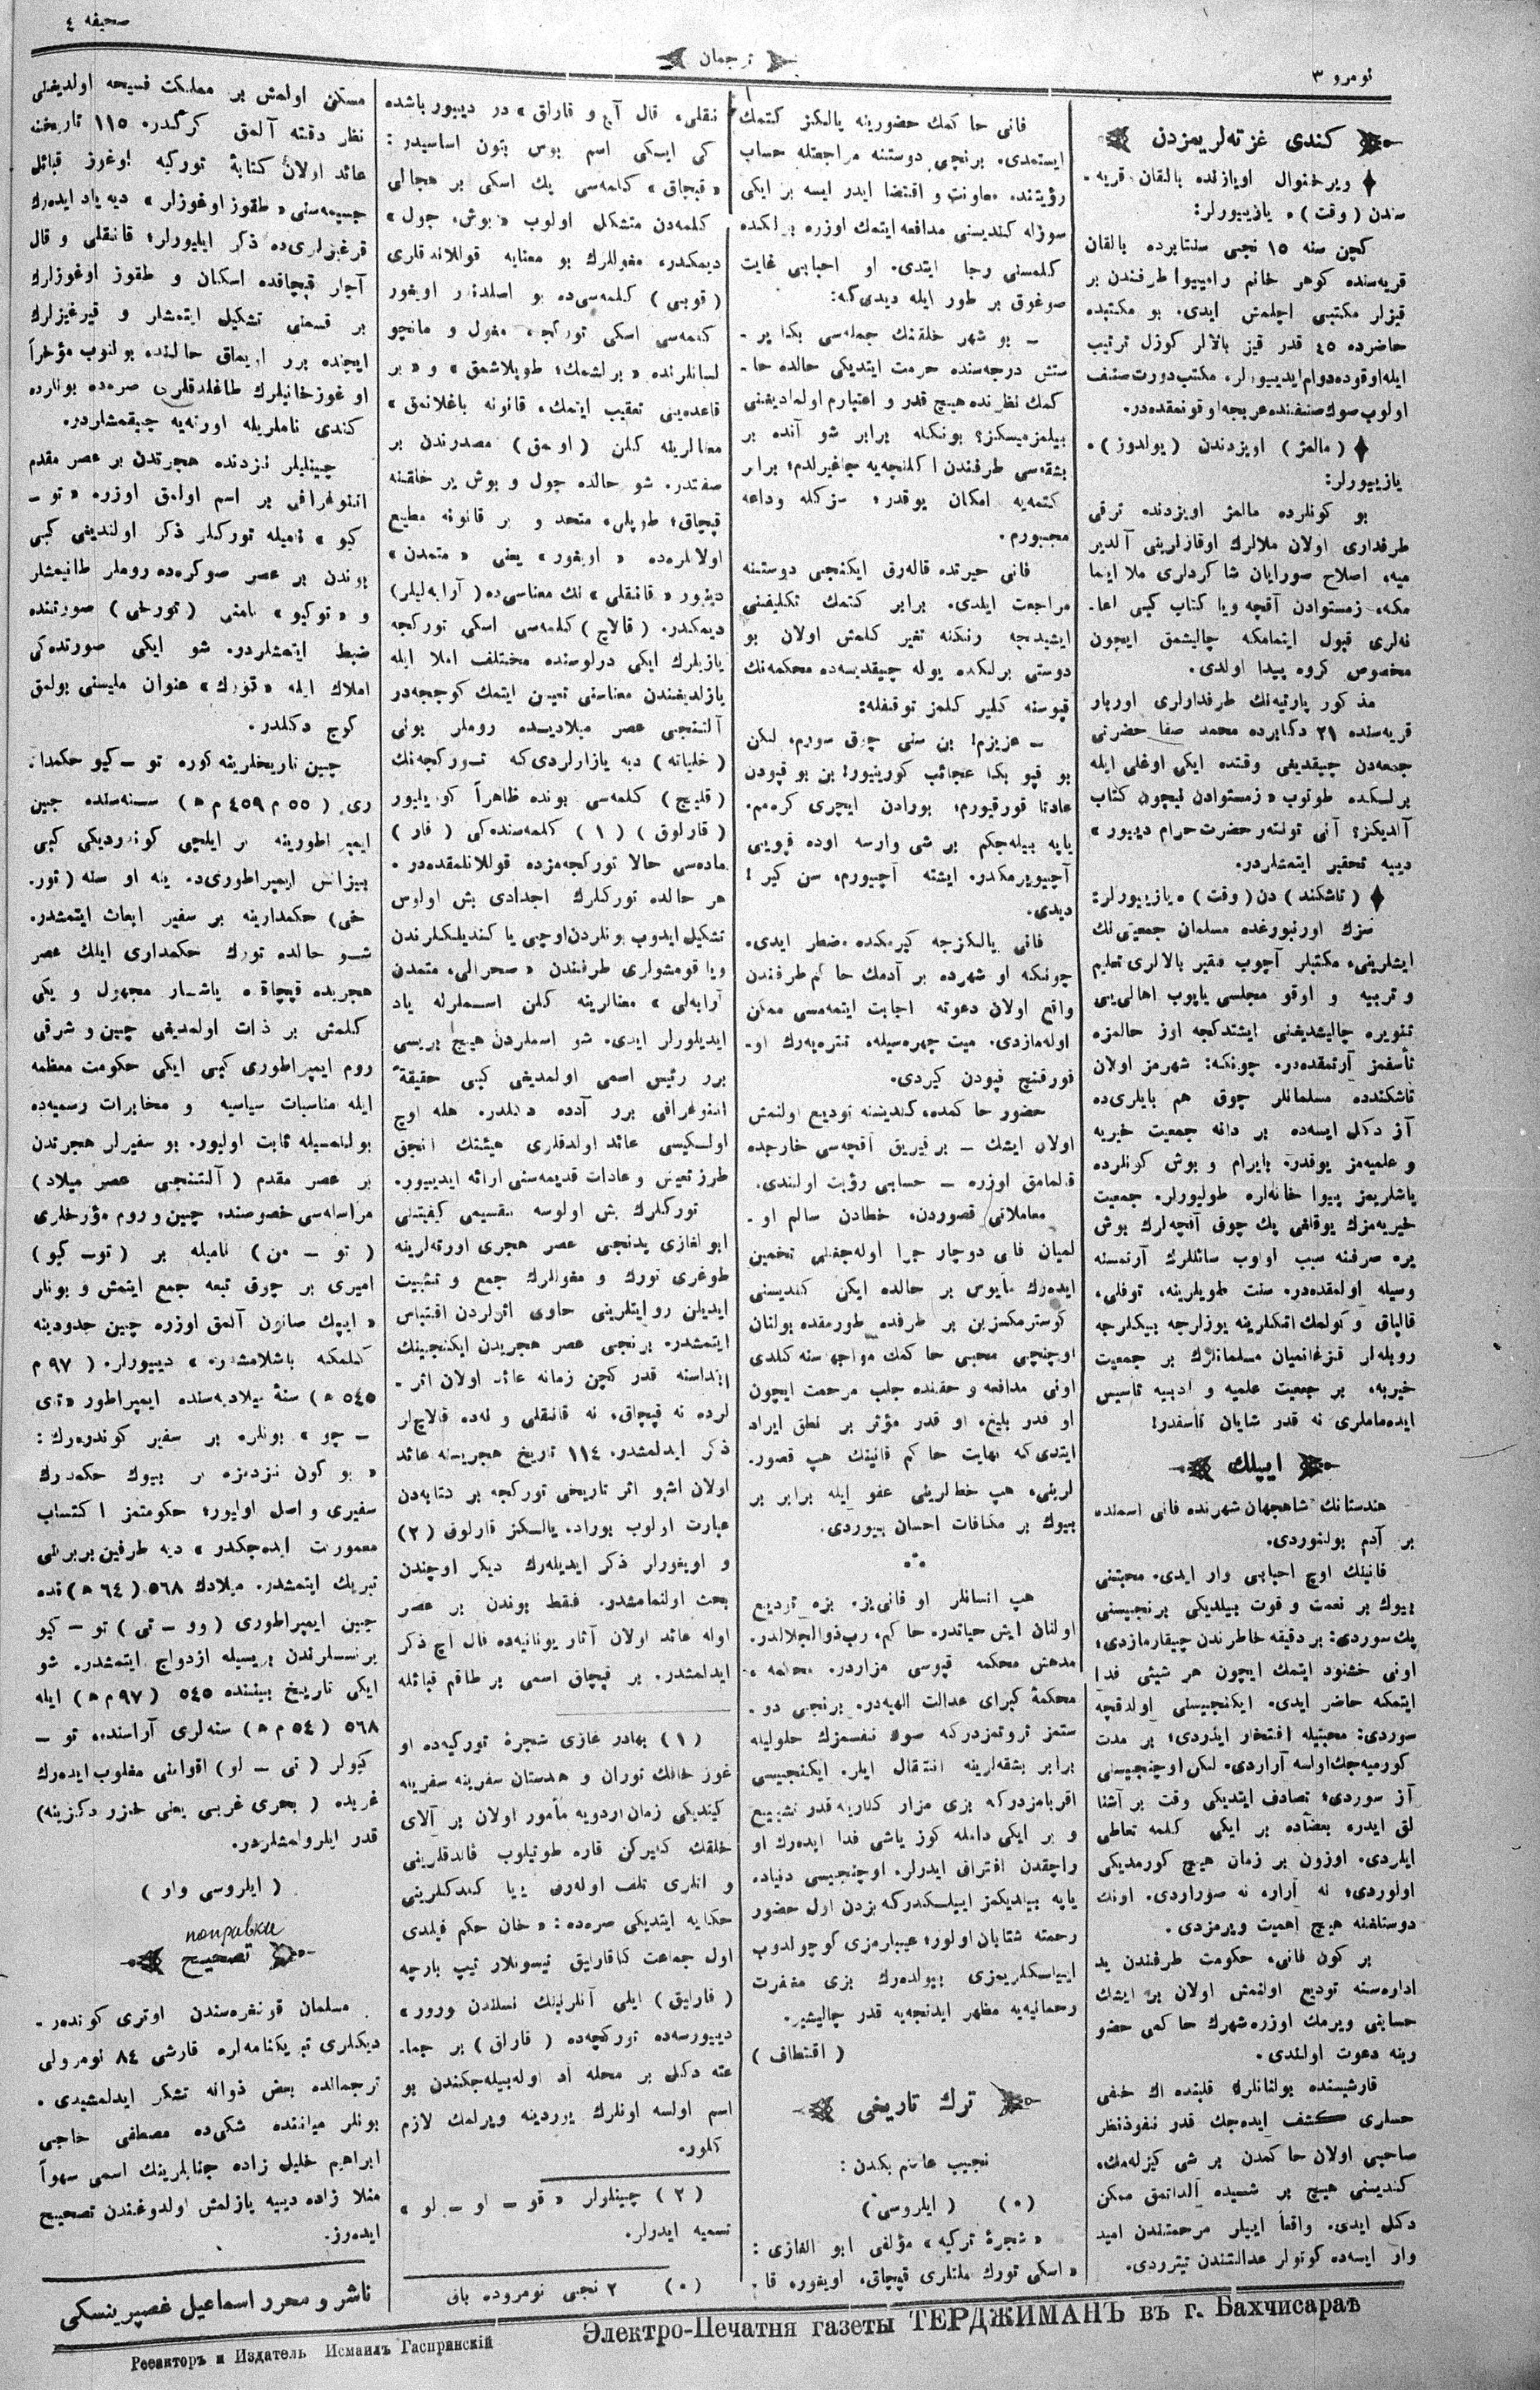 نومرو ٣
ترجمان
صحيفه ٤
كندی غزته‌لريمزدن
ويرخنوال اويازنده بالقان قريه‌ -
سندن (وقت)ه يازييورلر:
كچن سنه ١٥ نجی سنتابرده بالقان
قريه‌سنده كوهر خانم
قيزلر مكتبی اچلمش ايدی. بو مكتبده
حاضرده ٤٥ قدر قيز بالالر كوزل ترتيب
ايله اوقوده دوام ايدييورلر. مكتب دورت صنف
اولوب صوك صنفنده عربجه اوقونمقده‌در.
(مالمژ) اويزدندن (يولدوز)ه
يازييورلر:
بو كونلرده مالمژ اويزدنده ترقی
طرفداری اولان ملالرك اوقازلرينی آلدير
ميه، اصلاح صورايان شاكردلری ملا ايما
مكه، زمستوادن آقچه ويا كتاب كبی اعا.
نه‌لری قبول ايتمامكه چاليشمق ايچون
مخصوص كروه پيدا اولدی.
مذكور پارتيه‌نك طرفدارلری اورپار
قريه‌سنده ٢١ دكابرده محمد صفا حضرتی
جمعه‌دن چيقديغی وقتده ايكی اوغلی ايله
برلكده طوتوب «زمستوادن ايچون كتاب
آلديكز؟ آنی تونته‌ر حضرت حرام دييور»
دييه تحقير ايتمشلردر.
(تاشكند) دن (وقت)ه يازييورلر:
سزك اورنبورغده مسلمان جمعيتی‌نك
ايشلرينی، مكتبلر آچوب فقير بالالری تعليم
و تربيه و اوقو مجلسی ياپوب اهالی‌يی
تنويره چاليشديغنی ايشتدكجه اوز حالمزه
تأسفمز آرتمقده‌در. چونكه: شهرمز اولان
تاشكندده مسلمانلر چوق هم بايلری‌ده
آز دكل ايسه‌ده بر دانه جمعيت خيريه
و علميه‌مز يوقدر. بايرام و بوش كونلرده
ياشلريمز پيوا خانه‌لره طوليورلر. جمعيت
خيريه‌مزك يوقلغی پك چوق آقچه‌لرك بوش
يره صرفنه سبب اولوب سائللرك آرتمسنه
وسيله اولمقده‌در. سنت طويلرينه، توقلی،
قالپاق و كولمك آتمكلرينه يوزلرجه بيكلرجه
روبله‌لر قزغانميان مسلمانلرك بر جمعيت
خيريه، بر جمعيت علميه و ادبيه تأسيس
ايده‌ماملری نه قدر شايان تأسفدر!
ايبلك
هندستانك شاهجهان شهرنده فانی اسمنده
بر آدم بولنوردی.
فانينك اوچ احبابی وار ايدی. محبتنی
بيوك بر نعمت و قوت بيلديكی برنجيسنی
پك سوردی: بر دقيقه خاطرندن چيقارمازدی؛
اونی خشنود ايتمك ايچون هر شيئی فدا
ايتمكه حاضر ايدی. ايكنجيسنی اولدقچه
سوردی: محبتيله افتخار ايدردی؛ بر مدت
كورميه‌جك اولسه آراردی. لكن اوچنجيسنی
آز سوردی؛ تصادف ايتديكی وقت بر آشنا
لق ايدره بعضاده بر ايكی كلمه تعاطی
ايلردی. اوزون بر زمان هيچ كورمديكی
اولوردی؛ نه آرار، نه صوراردی. اونك
دوستلغنه هيچ اهميت ويرمزدی.
بر كون فانی، حكومت طرفندن يد
اداره‌سنه توديع اولنمش اولان بر ايشك
حسابنی ويرمك اوزره شهرك حاكمی حضو
رينه دعوت اولندی.
قارشيسنده بولنانلرك قلبنده اك خفی
حسلری كشف ايده‌جك قدر نفوذ نظر
صاحبی اولان حاكمدن بر شی كيزله‌مك،
كنديسنی هيچ بر شيده آلداتمق ممكن
دكل ايدی. واقعا اييلر مرحمتندن اميد
وار ايسه‌ده كوتولر عدالتندن تيتروردی.
فانی حاكمك حضورينه يالكز كتمك
ايستمدی. برنجی دوستنه مراجعتله حساب
رؤيتنده معاونت و اقتضا ايدر ايسه بر ايكی
سوزله كنديسنی مدافعه ايتمك اوزره برلكده
كلمسنی رجا ايتدی. او احبابی غايت
صوغوق بر طور ايله ديدی كه:
- بو شهر خلقنك جمله‌سی بكا پر -
ستش درجه‌سنده حرمت ايتديكی حالده حا -
كمك نظرنده هيچ قدر و اعتبارم اولمديغنی
بيلمزميسكز؟ بونكله برابر شو آنده بر
بشقه‌سی طرفندن اكلنجه‌يه چاغيرلدم؛ برابر
كتمه‌يه امكان يوقدر؛ سزكله وداعه
مجبورم.
فانی حيرتده قاله‌رق ايكنجی دوستنه
مراجعت ايلدی. برابر كتمك تكليفنی
ايشيدنجه رنكنه تغير كلمش اولان بو
دوستی برلكده يوله چيقديسه‌ده محكمه‌نك
قپوسنه كلير كلمز توقفله:
- عزيزم! بن سنی چوق سورم، لكن
بو قپو بكا عجائب كورينيور! بن بو قپودن
عادتا قورقيورم؛ بورادن ايچری كرمم.
ياپه بيله‌جكم بر شی وارسه اوده قپويی
آچيويرمكدر. ايشته آچيورم، سن كير!
ديدی.
فانی يالكزجه كيرمكده مضطر ايدی.
چونكه او شهرده بر آدمك حاكم طرفندن
واقع اولان دعوته اجابت ايتمه‌مسی ممكن
اوله‌مازدی. ميت چهره‌سيله، تتره‌يه‌رك او -
قورقنچ قپودن كيردی.
حضور حاكمده، كنديسنه توديع اولنمش
اولان ايشك - بر قيريق آقچه‌سی خارجده
قالمامق اوزره - حسابی رؤيت اولندی.
معاملاتی قصوردن، خطادن سالم او -
لميان فانی دوچار جزا اوله‌جغنی تخمين
ايده‌رك مأيوس بر حالده ايكن كنديسنی
كوسترمكسزين بر طرفده طورمقده بولنان
اوچنچی محبی حاكمك مواجهه‌سنه كلدی
اونی مدافعه و حقنده جلب مرحمت ايچون
او قدر بليغ، او قدر مؤثر بر نطق ايراد
ايتدی كه نهايت حاكم فانينك هپ قصور.
لرينی، هپ خطالرينی عفو ايله برابر بر
بيوك بر مكافات احسان بيوردی.
هپ انسانلر او فانی‌يز. بزه توديع
اولنان ايش حياتدر. حاكم، رب ذوالجلالدر.
مدهش محكمه قپوسی مزاردر. محاكمه،
محكمهٔ كبرای عدالت الهيه‌در. برنجی دو -
ستمز ثروتمزدركه صوك نفسمزك حلوليله
برابر بشقه‌لرينه انتقال ايلر. ايكنجيسی
اقربامزدركه بزی مزار كنارينه قدر تشييع
و بر ايكی دامله كوز ياشی فدا ايده‌رك او
راچقدن افتراق ايدرلر. اوچنجيسی دنياده
ياپه بيلديكمز اييلكدركه بزدن اول حضور
رحمته شتابان اولور؛ عيبلرمزی كوچولدوب
اييلكلريمزی بيولده‌رك بزی مغفرت
رحمانيه‌يه مظهر ايدنجه‌يه قدر چاليشير.
(اقتطاف)
ترك تاريخی
نجيب عاصم بكدن:
(٥) (ايلروسی)
«شجرهٔ تركيه» مؤلفی ابو الغازی:
«اسكی تورك ملتلری قپچاق، اويغور، قا.
نقلی، قال آچ و قارلق» در دييور باشده
كی ايكی اسم بوس بتون اساسيدر:
«قپچاق» كلمه‌سی پك اسكی بر هجالی
كلمه‌دن متشكل اولوب «بوش، چول»
ديمكدر. مغوللرك بو معنايه قوللاندقلری
(قوبی) كلمه‌سی‌ده بو اصلدندر اويغور
كلمه‌سی اسكی توركجه، مغول و مانچو
لسانلرنده «برلشمك؛ طوپلاشمق» و «بر
قاعده‌يی تعقيب ايتمك، قانونه باغلانمق»
معنالريله كلن (اومق) مصدرندن بر
صفتدر. شو حالده چول و بوش ير خلقنه
قپچاق؛ طوپلی، متحد و بر قانونه مطيع
اولانلره‌ده «اويغور» يعنی «متمدن»
دينيور «قانقلی» نك معناسی‌ده (آرابه‌ليلر)
ديمكدر. (قالاچ) كلمه‌سی اسكی توركجه
يازيلرك ايكی درلوسنده مختلف املا ايله
يازلديغندن معناسنی تعيين ايتمك كوججه‌در
آلتنجی عصر ميلاديده روملر بونی
(خلياته) ديه يازارلردی كه توركجه‌نك
(قليچ) كلمه‌سی بونده ظاهراً كوريليور
(قارلوق) (١) كلمه‌سنده‌كی (قار)
ماده‌سی حالا توركجه‌مزده قوللانلمقده‌در.
هر حالده توركلرك اجدادی بش اولوس
تشكيل ايدوب بونلردن اوچی يا كنديلكلرندن
ويا قومشولری طرفندن «صحرالی، متمدن
آرابه‌لی» معنالرينه كلن اسملرله ياد
ايديلورلر ايدی. شو اسملردن هيچ بريسی
برر رئيس اسمی اولمديغی كبی حقيقةً
اتنوغرافی برر آدده دكلدر. هله اوچ
اولكيسی عائد اولدقلری هيئتك انجق
طرز تعيش و عادات قديمه‌سنی ارائه ايدييور.
توركلرك بش اولوسه تقسيمی كيفيتنی
ابو الغازی يدنجی عصر هجری اورته‌لرينه
طوغری تورك و مغوللرك جمع و تثبيت
ايديلن روايتلرينی حاوی اثرلردن اقتباس
ايتمشدر. برنجی عصر هجريدن ايكنجينك
ابتداسنه قدر كچن زمانه عائد اولان اثر -
لرده نه قپچاق، نه قانقلی و نه‌ده قالاچ‌لر
ذكر ايدلمشدر. ١١٤ تاريخ هجريسنه عائد
اولان اشبو اثر تاريخی توركجه بر كتابه‌دن
عبارت اولوب بوراده يالكز قارلوق (٢)
و اويغورلر ذكر ايديله‌رك ديكر اوچندن
بحث اولنمامشدر. فقط بوندن بر عصر
اوله عائد اولان آثار يونانيه‌ده قال آچ ذكر
ايدلمشدر. بر قپچاق اسمی بر طاقم قبائله
(١) بهادر غازی شجرهٔ توركيه‌ده او
غوز خانك توران و هندستان سفرينه سفريله
كيتديكی زمان اردويه مأمور اولان بر آلای
خلقك كليركن قاره طوتيلوب قالدقلرينی
و اتلری تلف اوله‌رق يايا كلدكلرينی
حكايه ايتديكی صره‌ده: «خان حكم قيلدی
اول جماعت كا قارليق تيسونلار تيپ بارچه
(قارليق) ايلی آنلرنينك نسلندن ورور»
دييورسه‌ده توركچه‌ده (قارلق) بر جما.
عته دكل بر محله آد اوله‌بيله‌جكندن بو
اسم اولسه اونلرك يوردينه ويرلمك لازم
كلور.
(٢) چينلولر «قو - لو - لو»
تسميه ايدرلر.
(٥) ٢ نجی نومروده باق
مسكن اولمش بر مملكت فسيحه اولديغنی
نظر دقته آلمق كركدر. ١١٥ تاريخنه
عائد اولان كتابهٔ توركيه اوغوز قبائل
جسيمه‌سنی «طقوز اوغوزلر» ديه ياد ايده‌رك
قرغزلری‌ده ذكر ايليورلر؛ قانقلی و قال
آچلر قپچاقده اسكان و طقوز اوغوزلرك
بر قسمنی تشكيل ايتمشلر و قيرغيزلرك
ايچنده برر ايماق حالنده بولنوب مؤخراً
اوغوز خانيلرك طاغلدقلری صره‌ده بونلرده
كندی ناملريله اورته‌يه چيقمشلردر.
چينليلر نزدنده هجرتدن بر عصر مقدم
اتنوغرافی بر اسم اولمق اوزره «تو -
كيو» ناميله توركلر ذكر اولنديغی كبی
بوندن بر عصر صوكره‌ده روملر طانيمشلر
و «توكيو» نامنی (تورخی) صورتنده
ضبط ايتمشلردر. شو ايكی صورتده‌كی
املاك ايله «تورك» عنوان مليسنی بولمق
كوج دكلدر.
چين تاريخلرينه كوره تو - كيو حكمدا.
ری (٥٥ م ٤٥٩ م ه) سنه‌سنده چين
ايمپراطورينه بر ايلچی كوندرديكی كبی
بيزانس ايمپراطوری‌ده ينه او سنه (تور.
خی) حكمدارينه بر سفير ابعاث ايتمشدر.
شو حالده تورك حكمداری ايلك عصر
هجريده قپچاقده ياشار مجهول و يكی
كلمش بر ذات اولمديغی چين و شرقی
روم ايمپراطوری كبی ايكی حكومت معظمه
ايله مناسبات سياسيه و مخابرات رسميه‌ده
بولنمسيله ثابت اوليور. بو سفيرلر هجرتدن
بر عصر مقدم (آلتنجی عصر ميلاد)
مراسله‌سی خصوصنده چين و روم مؤرخلری
(تو - من) ناميله بر (تو - كيو)
اميری بر چوق تبعه جمع ايتمش و بونلر
«ايپك صاتون آلمق اوزره چين حدودينه
كلمكه باشلامشدر» دييورلر. (٩٧ م
٥٤٥ ه) سنهٔ ميلاديه‌سنده ايمپراطور «تای
- چو» بونلره بر سفير كوندره‌رك:
«بو كون نزدمزه بر بيوك حكمدارك
سفيری واصل اوليور؛ حكومتمز اكتساب
معموريت ايده‌جكدر» ديه طرفين بربرينی
تبريك ايتمشدر. ميلادك ٥٦٨ (٦٤ ه) نده
چين ايمپراطوری (وو - تی) تو - كيو
پرنسسلرندن بريسيله ازدواج ايتمشدر. شو
ايكی تاريخ بيننده ٥٤٥ (٩٧ م ه) ايله
٥٦٨ (٥٤ م ه) سنه‌لری آراسنده، تو -
كيولر (تی - لو) اقوامنی مغلوب ايده‌رك
غربده (بحری غربی يعنی خزر دكزينه)
قدر ايلرولمشلردر.
(ايلروسی وار)
поправки
تصحيح
مسلمان قونغره‌سندن اوتری كوندر -
ديكلری تبريكنامه‌لره قارشی ٨٤ نومرولی
ترجمانده بعض ذواته تشكر ايدلمشيدی.
بونلر مياننده شكی‌ده مصطفی حاجی
ابراهيم خليل زاده جنابلرينك اسمی سهواً
منلا زاده دييه يازلمش اولدوغندن تصحيح
ايده‌رز.
ناشر و محرر اسماعيل غصپرينسكی
Ресакторъ и Издатель Исмаилъ Гаспринскій
Электро-Печатня газеты ТЕРДЖИМАНЪ въ г. Бахчисараѣ